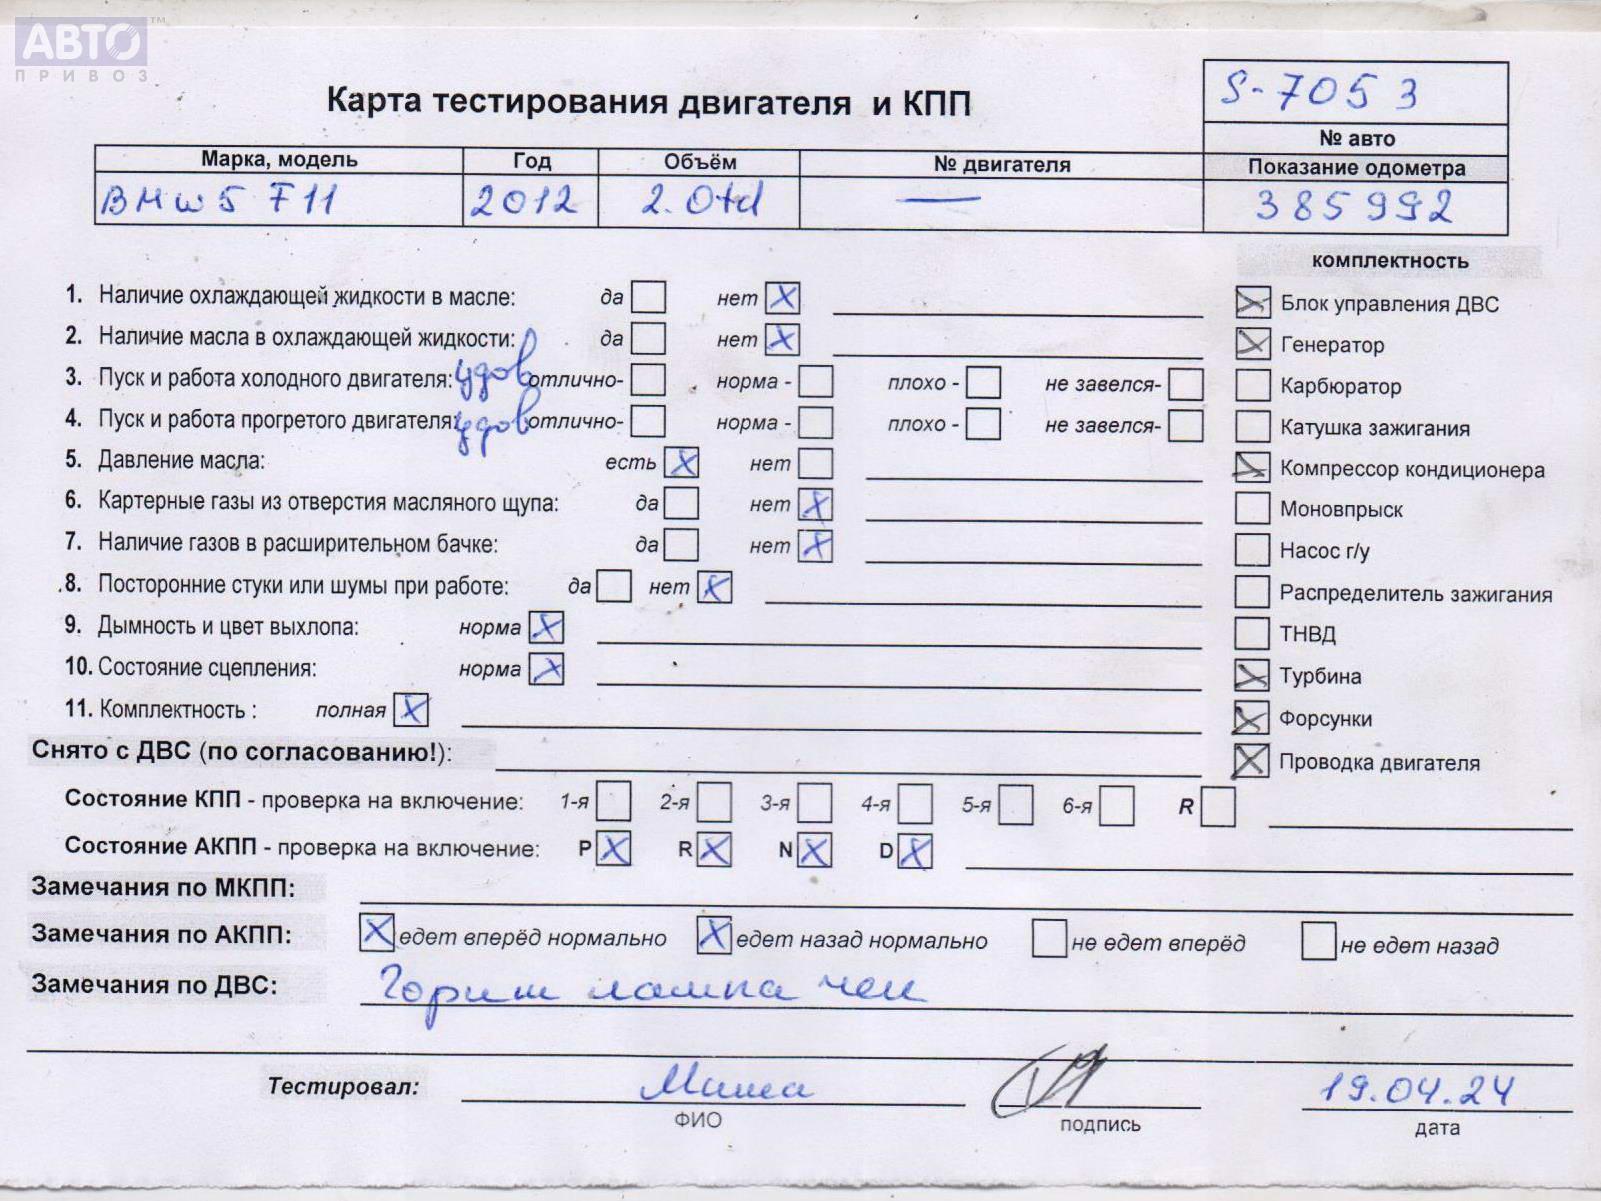 АВТО™
ПРИВОЗ
Карта тестирования двигателя и КПП
S-7053
№ авто
Марка, модель Год Объём № двигателя Показание одометра
BMW 5 F11 2012 2.0td — 385992
комплектность
1. Наличие охлаждающей жидкости в масле: да нет X
Блок управления ДВС
2. Наличие масла в охлаждающей жидкости: да нет X
Генератор
3. Пуск и работа холодного двигателя: удов отлично- норма - плохо - не завелся-
Карбюратор
4. Пуск и работа прогретого двигателя: удов отлично- норма - плохо - не завелся-
Катушка зажигания
5. Давление масла: есть X нет
Компрессор кондиционера
6. Картерные газы из отверстия масляного щупа: да нет X
Моновпрыск
7. Наличие газов в расширительном бачке: да нет X
Насос г/у
8. Посторонние стуки или шумы при работе: да нет X
Распределитель зажигания
9. Дымность и цвет выхлопа: норма X
ТНВД
10. Состояние сцепления: норма X
Турбина
11. Комплектность : полная X
Форсунки
Снято с ДВС (по согласованию!):
Проводка двигателя
Состояние КПП - проверка на включение: 1-я 2-я 3-я 4-я 5-я 6-я R
Состояние АКПП - проверка на включение: P X R X N X D X
Замечания по МКПП:
Замечания по АКПП: X едет вперёд нормально X едет назад нормально не едет вперёд не едет назад
Замечания по ДВС: Горит лампа чек
Тестировал: Миша 19.04.24
ФИО подпись дата